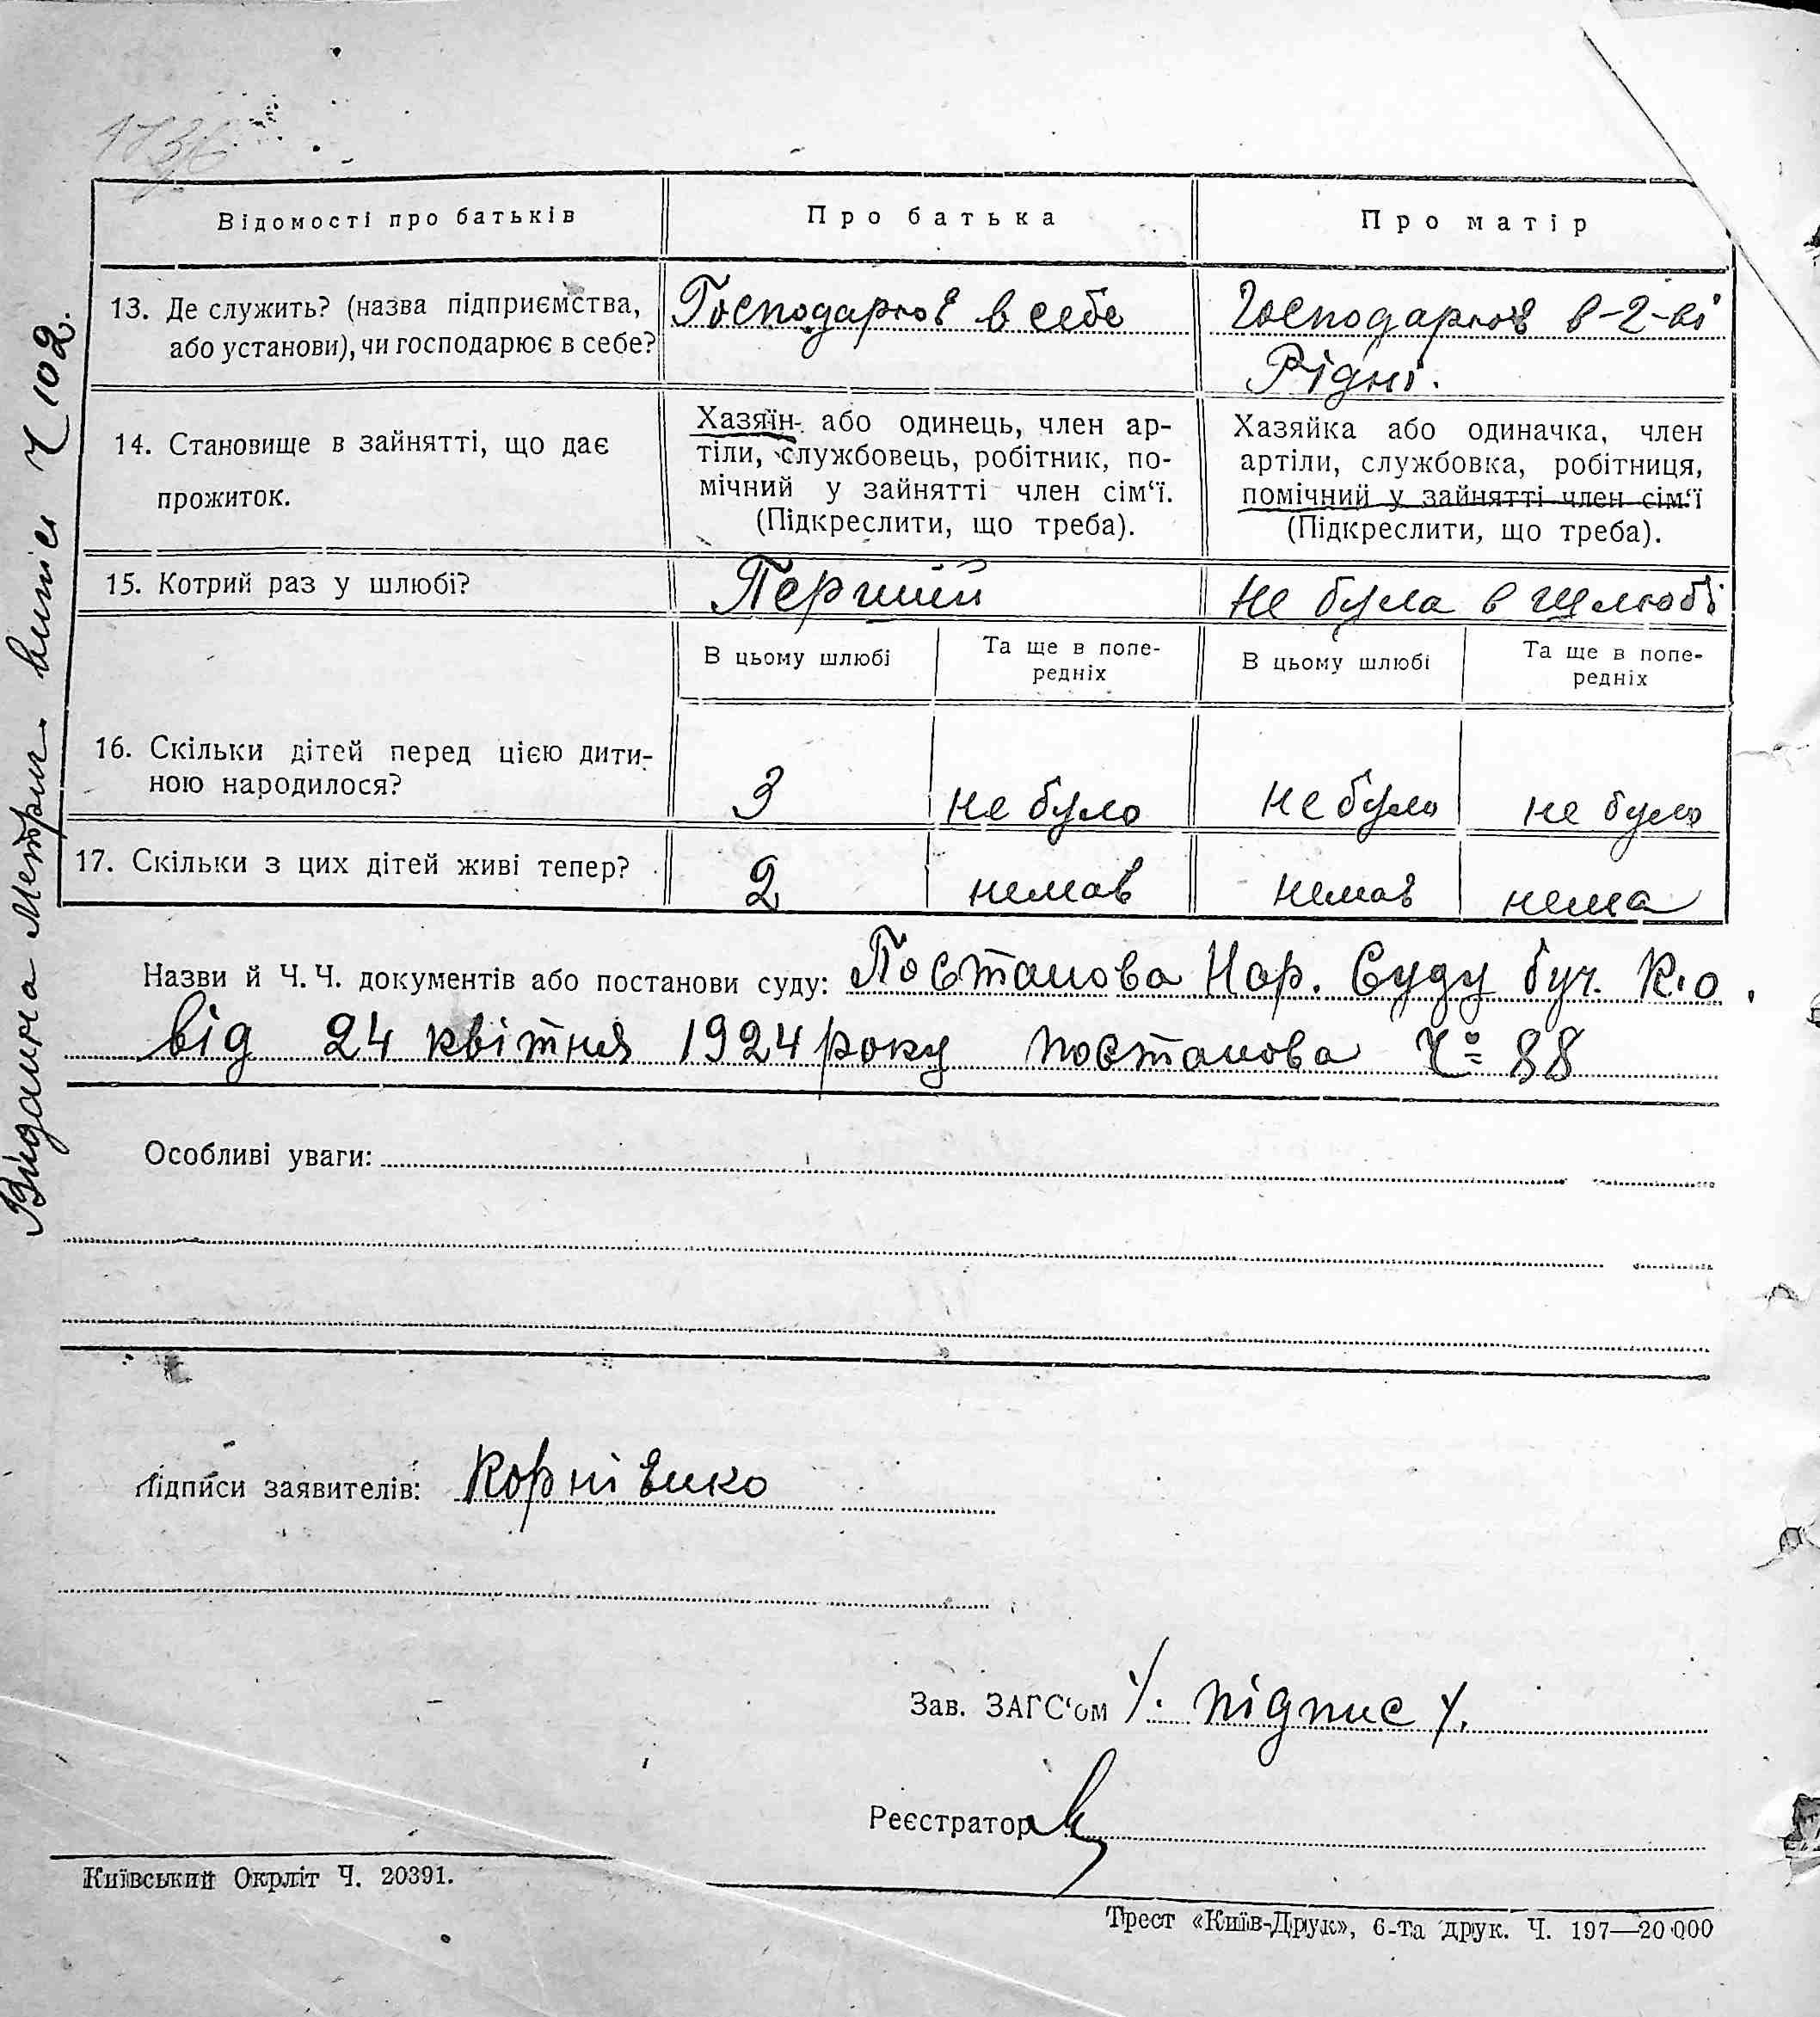 1736
Відомості про батьків
Про батька
Про матір
13. Де служить? (назва підприємства,
або установи), чи господарює в себе?
Господарює в себе
Господарює в-2-ві
Рідні.
14. Становище в зайнятті, що дає
прожиток.
Хазяїн або одинець, член ар-
тіли, службовець, робітник, по-
мічний у зайнятті член сім‘ї.
(Підкреслити, що треба).
Хазяйка або одиначка, член
артіли, службовка, робітниця,
помічний у зайнятті член сім‘ї
(Підкреслити, що треба).
15. Котрий раз у шлюбі?
Перший
Не була в шлюбі
В цьому шлюбі
Та ще в попе-
редніх
В цьому шлюбі
Та ще в попе-
редніх
16. Скільки дітей перед цією дити-
ною народилося?
3
не було
не було
не було
17. Скільки з цих дітей живі тепер?
2
немає
немає
нема
Назви й Ч. Ч. документів або постанови суду: Постанова Нар. Суду буч. К.О.
від 24 квітня 1924 року постанова Ч= 88
Особливі уваги:
Підписи заявителів: Корнієнко
Зав. ЗАГС‘ом /. підпис /.
Реєстратор
Київський Окрліт Ч. 20391.
Трест «Київ-Друк», 6-та друк. Ч. 197—20 000
Видана Метрич. випис Ч 102.